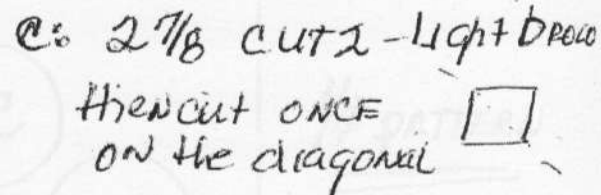 C: 2 7/8 CUT 2 - Light Brow
then cut ONCE
ON the diagonal